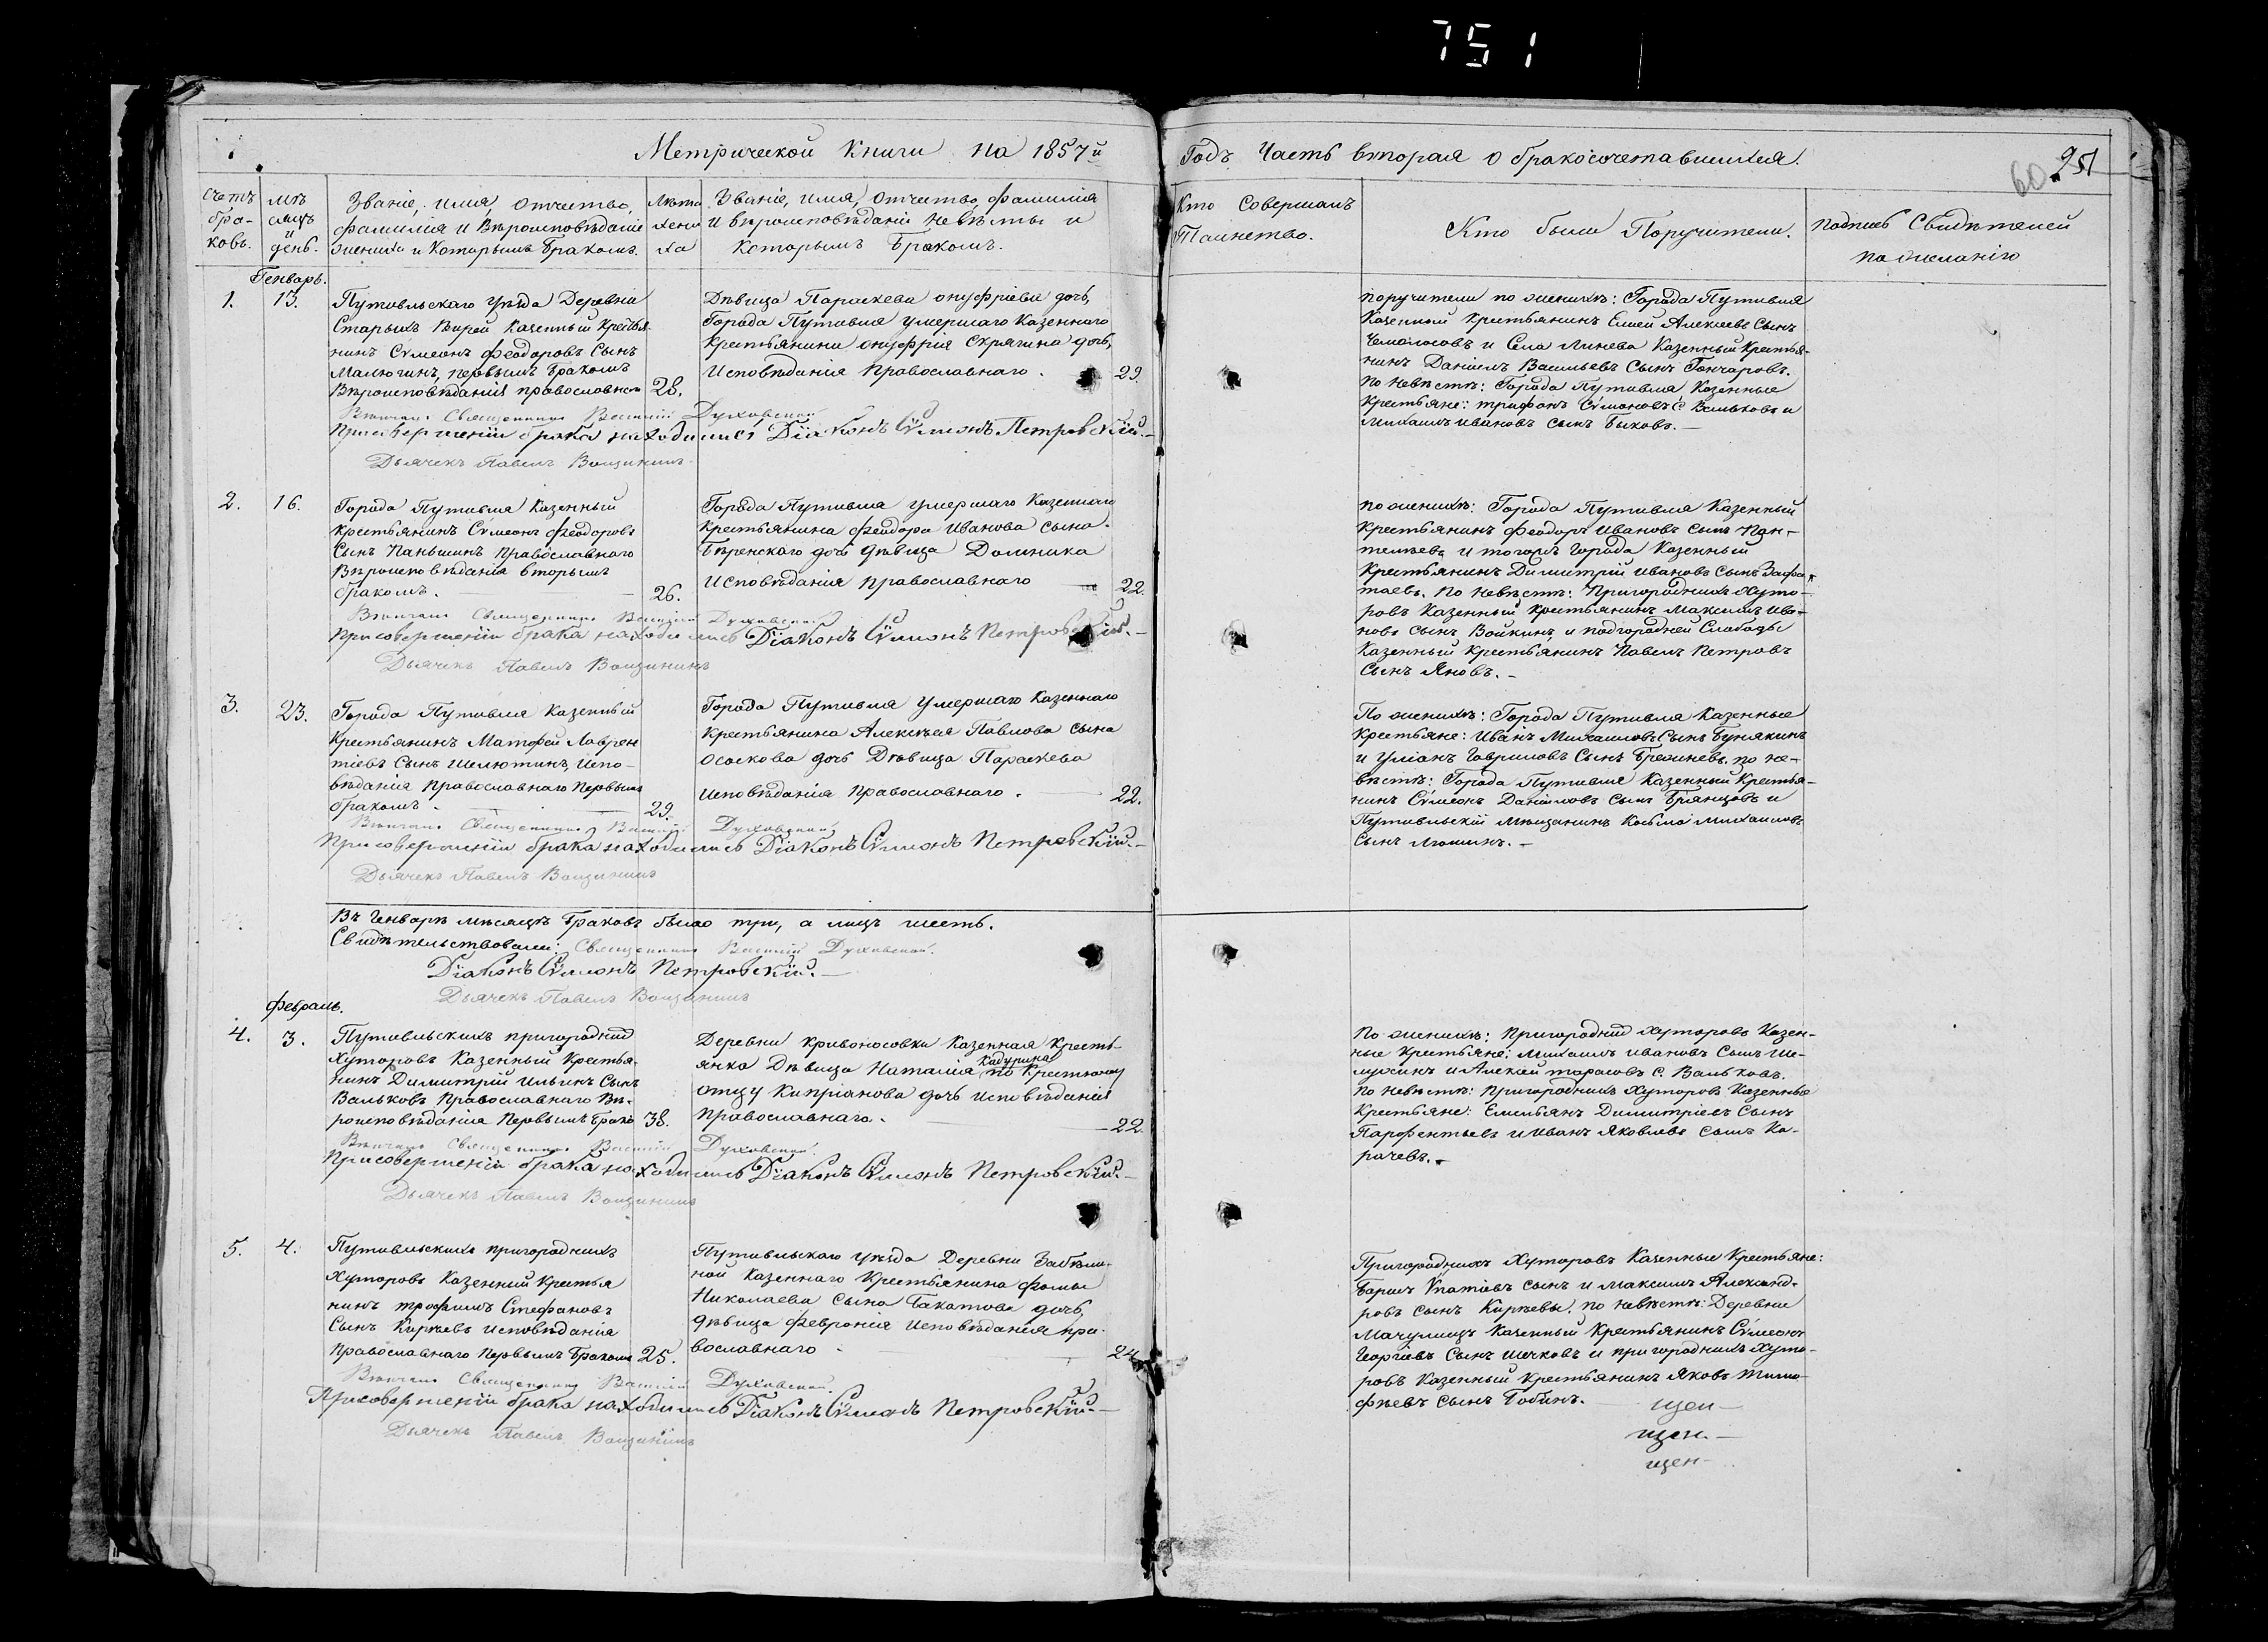 751
Метрической Книги на 1857й Годъ Часть вторая о бракосочетавшихся.
60 251
Счетъ браковъ.
Мѣсяцъ и день.
Званіе, имя, отчество,
фамилія и Вѣроисповѣданіе
жениха и Которымъ Бракомъ.
Лѣта жениха
Званіе, имя, отчество, фамилія
и вѣроисповѣданіе невѣсты и
Которымъ Бракомъ.
Кто Совершалъ
Таинство.
Кто были Поручители.
Подпись Свидѣтелей
по желанію
Генварь.
1. 13.
Путивльскаго уѣзда Деревни
Старыхъ Казенный Крестья-
нинъ Сѵмеонъ Феодоровъ Сынъ
Малютинъ, первымъ бракомъ
Вѣроисповѣданія православнаго 28.
Дѣвица Параскева Онуфріева дочь,
Города Путивля умершаго Казеннаго
Крестьянина Онуфрія Скрягина дочь,
Исповѣданія Православнаго. 29.
Поручители по женихѣ: Города Путивля
Казенный Крестьянинъ Елисей Алексѣевъ Сынъ
и Села Линева Казенный Крестья-
нинъ Даніилъ Васильевъ Сынъ Гончаровъ.
По невѣстѣ: Города Путивля Казенные
Крестьяне: Трифонъ Сѵмоновъ С. Вальковъ и
Михаилъ Ивановъ сынъ Быковъ. —
Вѣнчалъ Священникъ Василій Духовской
При совершеніи брака находились Діаконъ Сѵмеонъ Петровскій. —
Дьячекъ Павелъ Вощининъ
2. 16.
Города Путивля Казенный
Крестьянинъ Сѵмеонъ Феодоровъ
Сынъ Паньшинъ Православнаго
Вѣроисповѣданія вторымъ
бракомъ. — 26.
Города Путивля умершаго Казеннаго
Крестьянина Феодора Иванова сына
дочь дѣвица Домника
Исповѣданія Православнаго — 22.
По женихѣ: Города Путивля Казенный
Крестьянинъ Феодоръ Ивановъ Сынъ Пан-
телѣевъ и тогожъ города Казенный
Крестьянинъ Димитрій Ивановъ Сынъ
По невѣстѣ: Пригородныхъ Хуто-
ровъ Казенный Крестьянинъ Максимъ Ива-
новъ сынъ Войкинъ и подгородней Слободы
Казенный Крестьянинъ Павелъ Петровъ
Сынъ Яновъ. —
Вѣнчалъ Священникъ Василій Духовской
При совершеніи брака находились Діаконъ Сѵмеонъ Петровскій. —
Дьячекъ Павелъ Вощининъ
3. 23.
Города Путивля Казенный
Крестьянинъ Матфей Лаврен
тіевъ Сынъ Шелютинъ, Испо-
вѣданія Православнаго Первымъ
бракомъ. — 29.
Города Путивля Умершаго Казеннаго
Крестьянина Алексѣя Павлова Сына
Осокова дочь Дѣвица Параскева
Исповѣданія Православнаго. — 22.
По женихѣ: Города Путивля Казенные
Крестьяне: Иванъ Михаиловъ Сынъ Бунякинъ
и Уліанъ Гавриловъ Сынъ по не-
вѣстѣ: Города Путивля Казенный Крестья-
нинъ Сѵмеонъ Даніиловъ Сынъ Брянцовъ и
Путивльскій Мѣщанинъ Косьма Михаиловъ
Сынъ Мошинъ. —
Вѣнчалъ Священникъ Василій Духовской
При совершеніи брака находились Діаконъ Сѵмеонъ Петровскій. —
Дьячекъ Павелъ Вощининъ
Въ Генварѣ мѣсяцѣ Браковъ было три, а лицъ шесть.
Свидѣтельствовали: Священникъ Василій Духовской.
Діаконъ Сѵмеонъ Петровскій. —
Дьячекъ Павелъ Вощининъ
Февраль.
4. 3.
Путивльскихъ пригородныхъ
Хуторовъ Казенный Крестья-
нинъ Димитрій Ильинъ Сынъ
Вальковъ Православнаго Вѣ-
роисповѣданія Первымъ Брако 38.
Деревни Кривоносовки Казенная Кресть-
янка Дѣвица Наталія Кадурина по Крестному
отцу Кипріанова дочь исповѣданія
православнаго. — 22.
По женихѣ: Пригородныхъ Хуторовъ Казен-
ные Крестьяне: Михаилъ Ивановъ Сынъ Ше-
лухинъ и Алексѣй Тарасовъ С. Вальковъ.
По невѣстѣ: Пригородныхъ Хуторовъ Казенные
Крестьяне: Емельянъ Димитріевъ Сынъ
Парфентьевъ и Иванъ Яковлевъ Сынъ Ка-
рачевъ. —
Вѣнчалъ Священникъ Василій Духовской.
При совершеніи брака находились Діаконъ Сѵмеонъ Петровскій. —
Дьячекъ Павелъ Вощининъ
5. 4.
Путивльскихъ пригородныхъ
Хуторовъ Казенный Крестья
нинъ Трофимъ Стефановъ
Сынъ Кирѣевъ исповѣданія
Православнаго Первымъ Бракомъ 25.
Путивльскаго уѣзда Деревни
Казеннаго Крестьянина Фомы
Николаева Сына Бакатова дочь,
дѣвица Февронія Исповѣданія пра-
вославнаго — 24
Пригородныхъ Хуторовъ Казенные Крестьяне:
Борисъ Ѵпатіевъ сынъ и Максимъ Александ-
ровъ сынъ Кирѣевы. по невѣстѣ: Деревни
Мачулищъ Казенный Крестьянинъ Сѵмеонъ
Георгіевъ Сынъ Шечковъ и пригородныхъ Хуто-
ровъ Казенный Крестьянинъ Яковъ Тимо-
фѣевъ Сынъ Бобинъ.
Вѣнчалъ Священникъ Василій Духовской.
При совершеніи брака находились Діаконъ Сѵмеонъ Петровскій. —
Дьячекъ Павелъ Вощининъ
щен —
щен. —
щен —